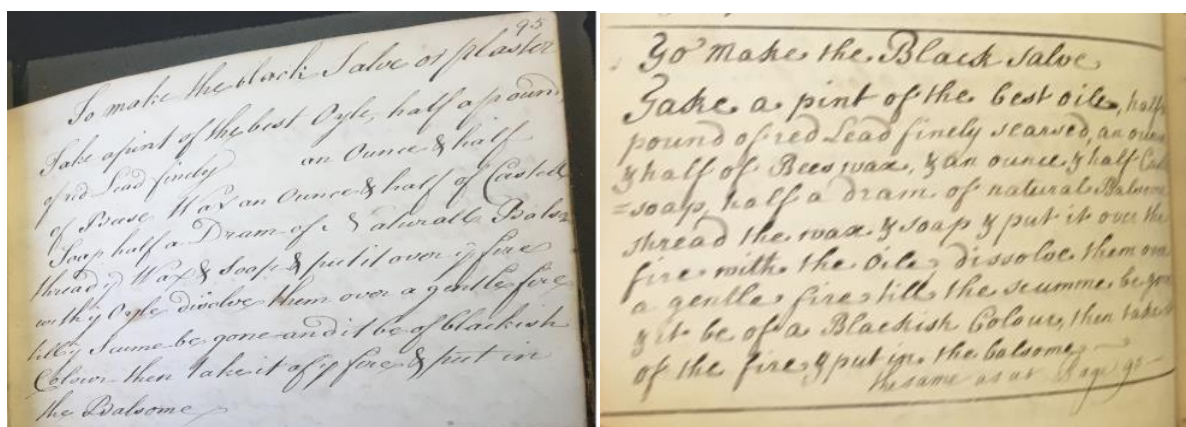 95
To make the black Salve or plaster
Take a pint of the best Oyle, half a pound
of red Lead finely an Ounce & half
of Beese Wax an Ounce & half of Castell
Soap half a Dram of Naturall Balsm
thread yͤ Wax & Soap & put it over yͤ fire
with yͤ Oyle disolve them over a gentle fire
till yͤ Scume be gone and it be of blackish
Colour then take it of yͤ fire & put in
the Balsome
To make the Black salve
Take a pint of the best oile, half
pound of red Lead finely searsed, an ounce
& half of Bees wax, & an ounce & half Cas
=soap, half a dram of natural Balsome
shread the wax & soap & put it over the
fire with the oile dissolve them over
a gentle fire till the scumme be gone
& it be of a Blackish Colour, then take it
of the fire & put in the balsome
the same as at Page 95